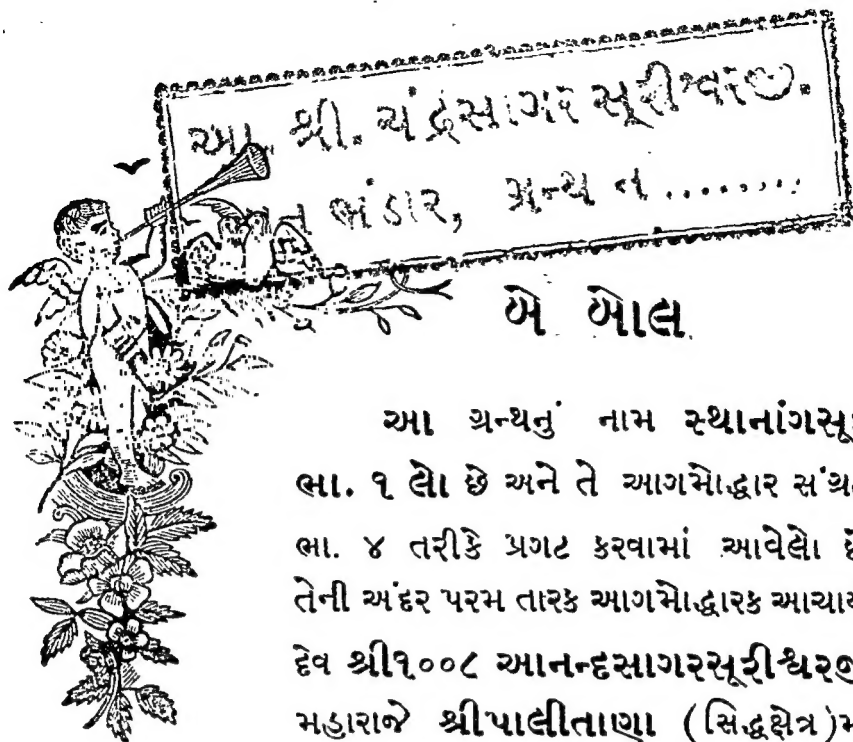 આ. શ્રી. ચંદ્રસાગર સૂરીશ્વરજી.
ભંડાર, ગ્રન્થ ન ........
બે બોલ
આ ગ્રન્થનું નામ સ્થાનાંગસૂ
ભા. ૧ લો છે અને તે આગમોદ્ધાર સંગ્ર
ભા. ૪ તરીકે પ્રગટ કરવામાં આવેલો છે
તેની અંદર પરમ તારક આગમોદ્ધારક આચાર્ય
દેવ શ્રી૧૦૦૮ આનન્દસાગરસૂરીશ્વરજી
મહારાજે શ્રીપાલીતાણા (સિદ્ધક્ષેત્ર)મ